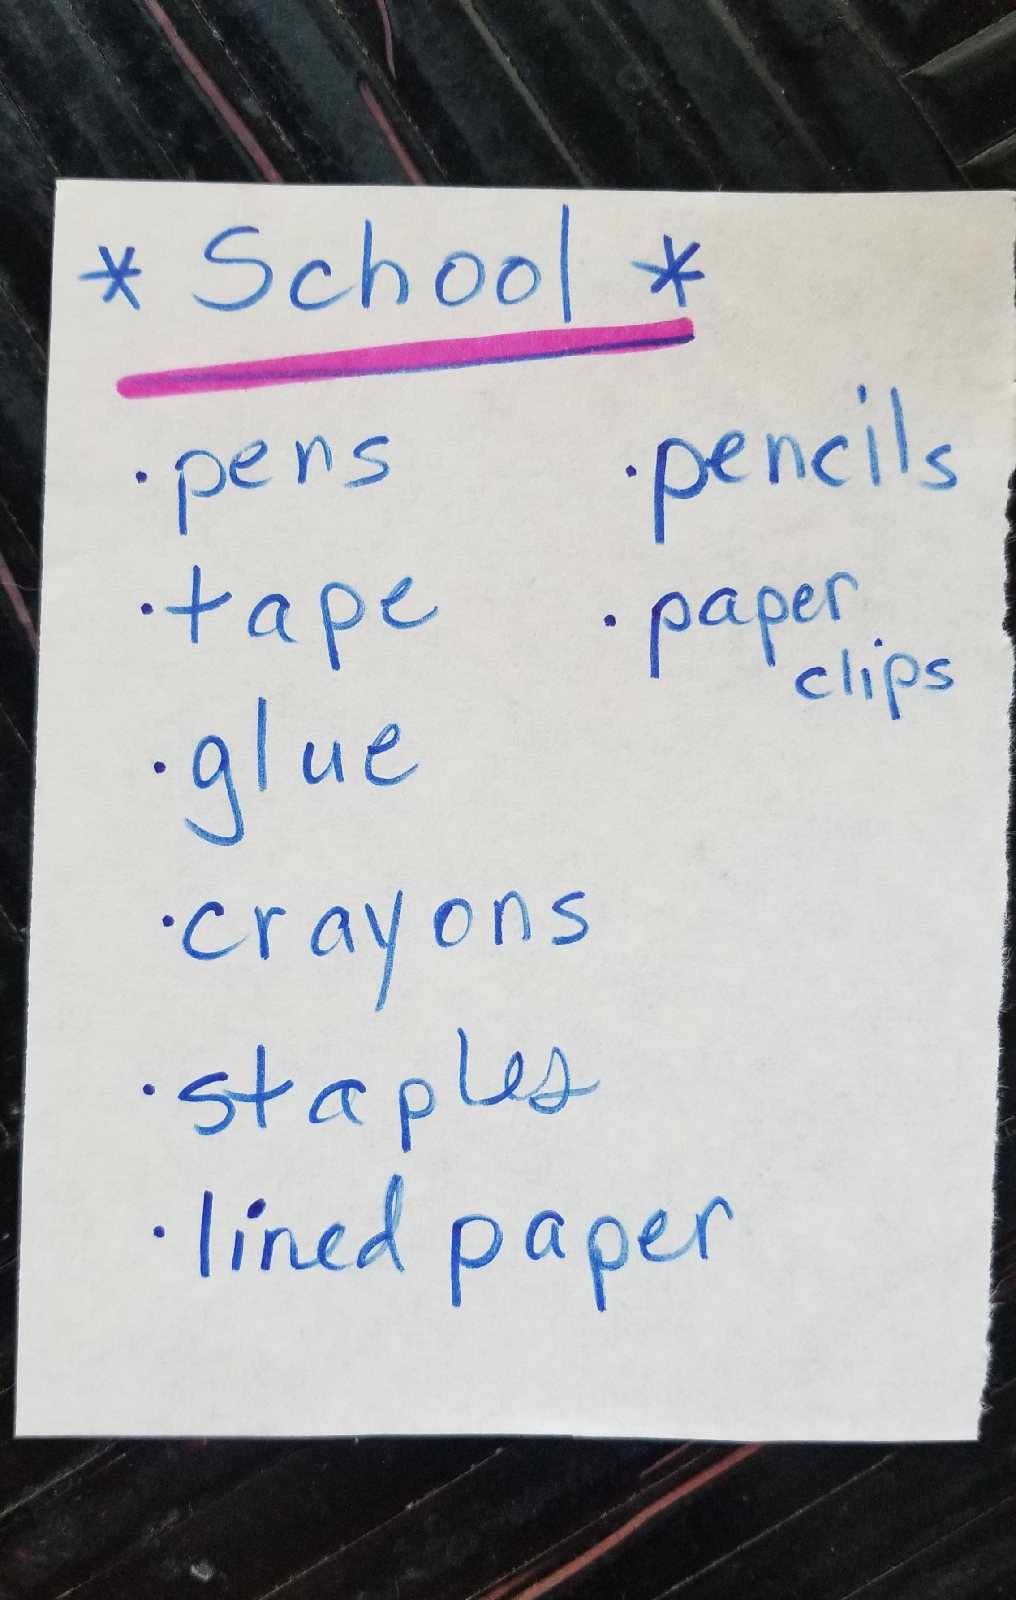 * School *
· pens
· tape
· glue
· crayons
· staples
· lined paper
· pencils
· paper
clips